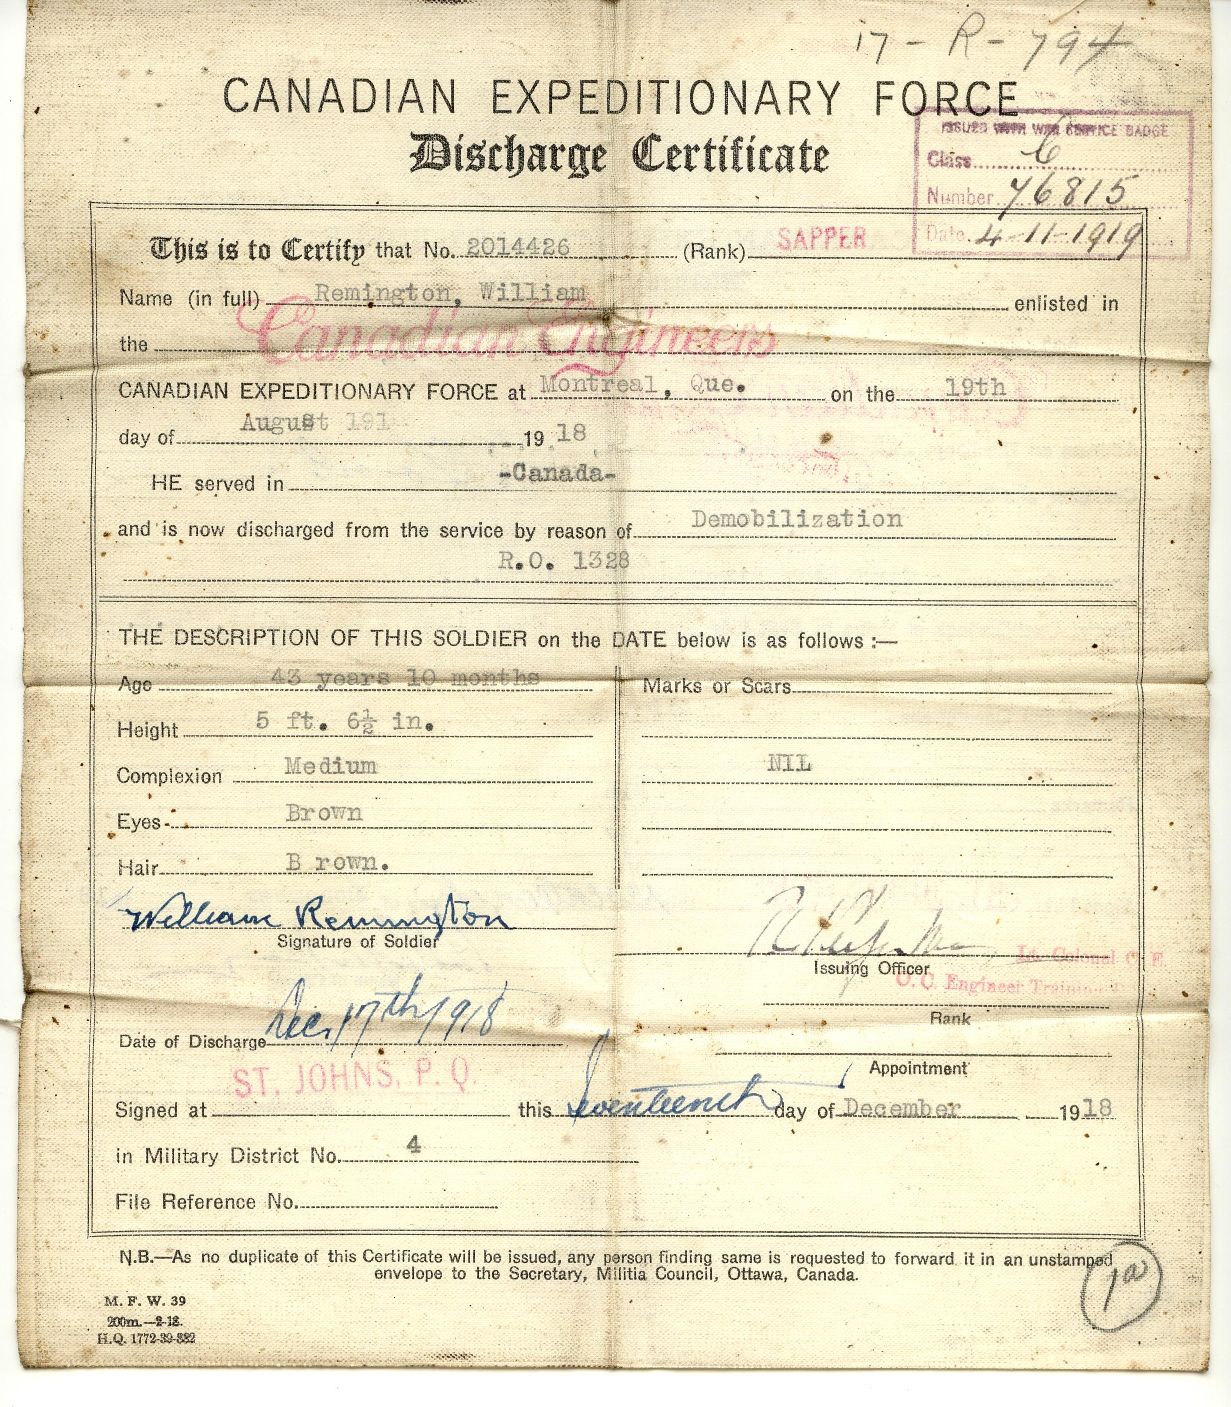 17 - R - 794
CANADIAN EXPEDITIONARY FORCE
Discharge Certificate
ISSUED WITH WAR SERVICE BADGE
Class C
Number 76815
Date. 4-11-1919
This is to Certify that No. 2014426 (Rank) SAPPER
Name (in full) Remington, William enlisted in
the Canadian Engineers
CANADIAN EXPEDITIONARY FORCE at Montreal, Que. on the 19th
day of August 191 19 18
HE served in -Canada-
and is now discharged from the service by reason of Demobilization
R.O. 1328
THE DESCRIPTION OF THIS SOLDIER on the DATE below is as follows :—
Age 43 years 10 months
Marks or Scars
Height 5 ft. 6½ in.
Complexion Medium
NIL
Eyes Brown
Hair B rown.
William Remington
Signature of Soldier
Lt. Colonel C. E.
Issuing Officer
O. C. Engineer Training
Rank
Date of Discharge Dec. 17th/1918
Appointment
Signed at ST. JOHNS, P. Q. this Seventeenth day of December 1918
in Military District No. 4
File Reference No.
N.B.—As no duplicate of this Certificate will be issued, any person finding same is requested to forward it in an unstamped
envelope to the Secretary, Militia Council, Ottawa, Canada.
1a
M. F. W. 39
200m.—2-18.
H.Q. 1772-39-882